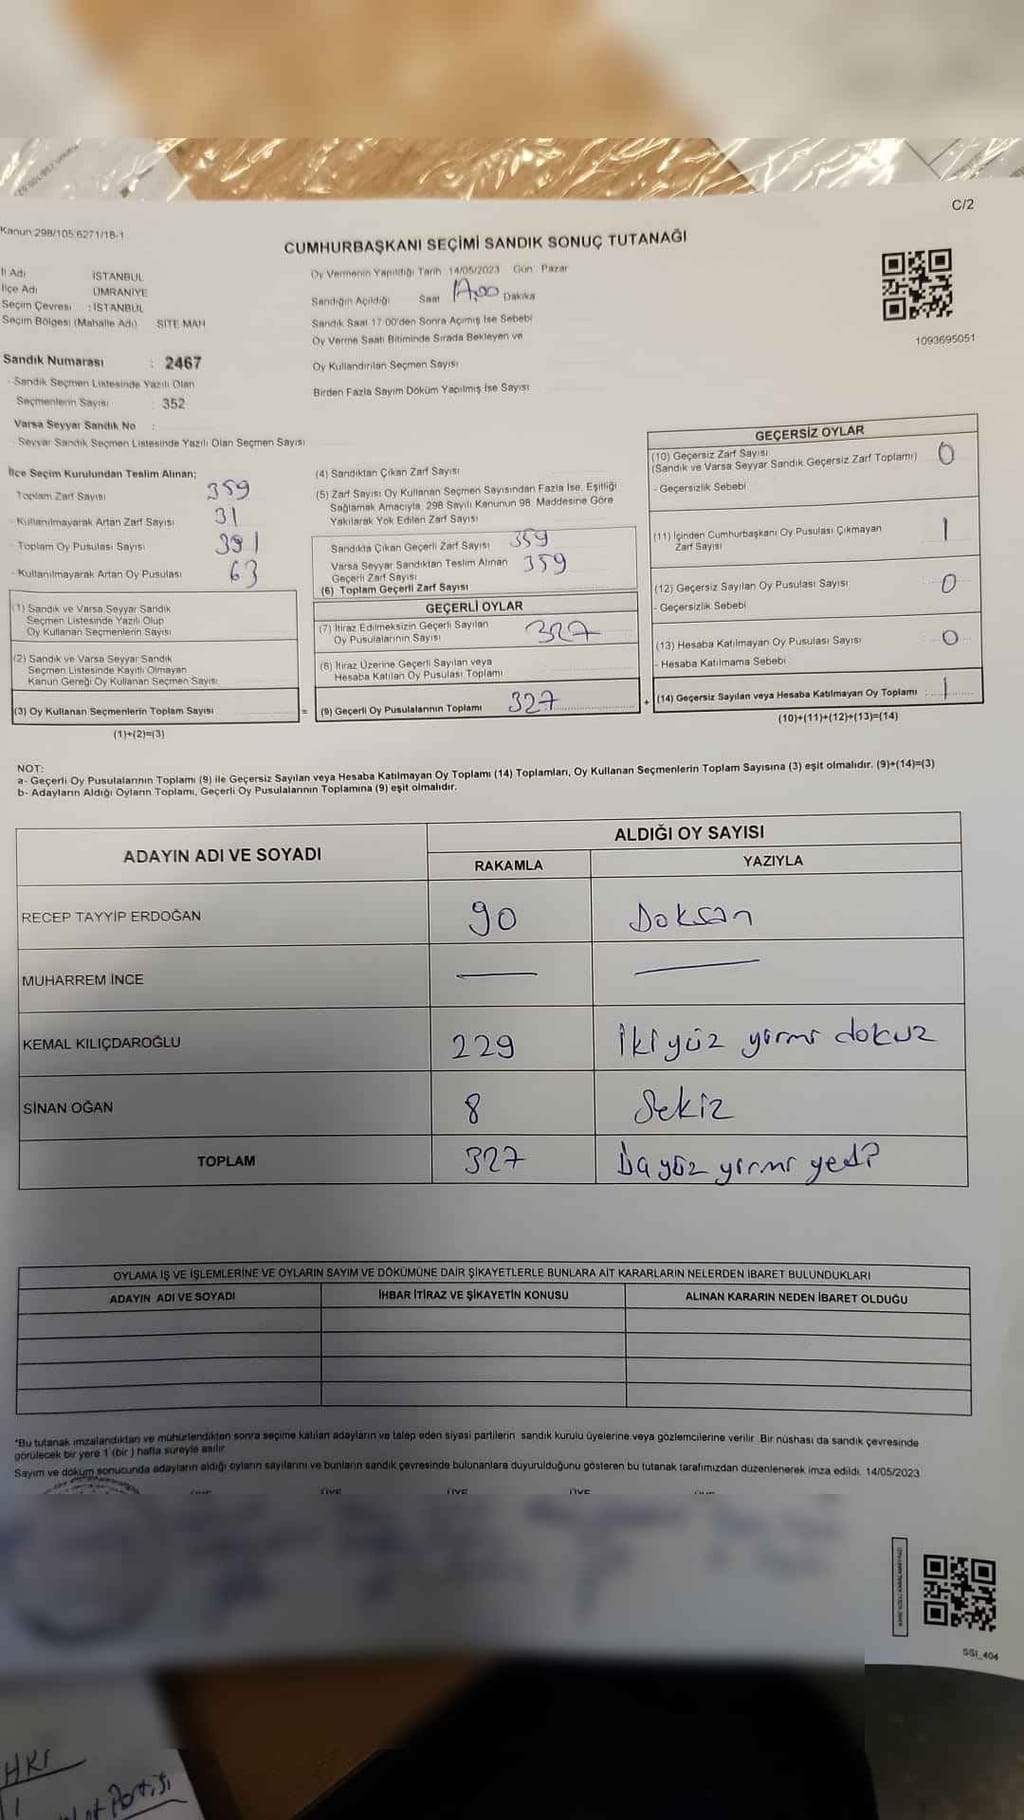 C/2
Kanun:298/105 6271/18-1
CUMHURBAŞKANI SEÇİMİ SANDIK SONUÇ TUTANAĞI
İl Adı İSTANBUL
İlçe Adı ÜMRANİYE
Seçim Çevresi : İSTANBUL
Seçim Bölgesi (Mahalle Adı) SİTE MAH
Oy Vermenin Yapıldığı Tarih 14/05/2023 Gün Pazar
Sandığın Açıldığı Saat 17.00 Dakika
Sandık Saat 17:00'den Sonra Açımış İse Sebebi
Oy Verme Saati Bitiminde Sırada Bekleyen ve
Oy Kullandırılan Seçmen Sayısı
Birden Fazla Sayım Döküm Yapılmış İse Sayısı
1093695051
Sandık Numarası : 2467
- Sandık Seçmen Listesinde Yazılı Olan
Seçmenlerin Sayısı 352
Varsa Seyyar Sandık No :
Seyyar Sandık Seçmen Listesinde Yazılı Olan Seçmen Sayısı
İlçe Seçim Kurulundan Teslim Alınan;
Toplam Zarf Sayısı 359
- Kullanılmayarak Artan Zarf Sayısı 31
- Toplam Oy Pusulası Sayısı 391
- Kullanılmayarak Artan Oy Pusulası 63
(1) Sandık ve Varsa Seyyar Sandık
Seçmen Listesinde Yazılı Olup
Oy Kullanan Seçmenlerin Sayısı
(2) Sandık ve Varsa Seyyar Sandık
Seçmen Listesinde Kayıtlı Olmayan
Kanun Gereği Oy Kullanan Seçmen Sayısı
(3) Oy Kullanan Seçmenlerin Toplam Sayısı =
(1)+(2)=(3)
(4) Sandıktan Çıkan Zarf Sayısı
(5) Zarf Sayısı Oy Kullanan Seçmen Sayısından Fazla İse, Eşitliği
Sağlamak Amacıyla, 298 Sayılı Kanunun 98. Maddesine Göre
Yakılarak Yok Edilen Zarf Sayısı
Sandıkta Çıkan Geçerli Zarf Sayısı 359
Varsa Seyyar Sandıktan Teslim Alınan 359
Geçerli Zarf Sayısı
(6) Toplam Geçerli Zarf Sayısı
GEÇERLİ OYLAR
(7) İtiraz Edilmeksizin Geçerli Sayılan
Oy Pusulalarının Sayısı 327
(8) İtiraz Üzerine Geçerli Sayılan veya
Hesaba Katılan Oy Pusulası Toplamı
(9) Geçerli Oy Pusulalarının Toplamı 327 +
GEÇERSİZ OYLAR
(10) Geçersiz Zarf Sayısı 0
(Sandık ve Varsa Seyyar Sandık Geçersiz Zarf Toplamı)
- Geçersizlik Sebebi
(11) İçinden Cumhurbaşkanı Oy Pusulası Çıkmayan 1
Zarf Sayısı
(12) Geçersiz Sayılan Oy Pusulası Sayısı 0
- Geçersizlik Sebebi
(13) Hesaba Katılmayan Oy Pusulası Sayısı 0
- Hesaba Katılmama Sebebi
(14) Geçersiz Sayılan veya Hesaba Katılmayan Oy Toplamı : 1
(10)+(11)+(12)+(13)=(14)
NOT:
a- Geçerli Oy Pusulalarının Toplamı (9) ile Geçersiz Sayılan veya Hesaba Katılmayan Oy Toplamı (14) Toplamları, Oy Kullanan Seçmenlerin Toplam Sayısına (3) eşit olmalıdır. (9)+(14)=(3)
b- Adayların Aldığı Oyların Toplamı, Geçerli Oy Pusulalarının Toplamına (9) eşit olmalıdır.
ADAYIN ADI VE SOYADI ALDIĞI OY SAYISI
RAKAMLA YAZIYLA
RECEP TAYYİP ERDOĞAN 90 Doksan
MUHARREM İNCE — —
KEMAL KILIÇDAROĞLU 229 İkiyüz yirmi dokuz
SİNAN OĞAN 8 Sekiz
TOPLAM 327 yirmi yedi
OYLAMA İŞ VE İŞLEMLERİNE VE OYLARIN SAYIM VE DÖKÜMÜNE DAİR ŞİKAYETLERLE BUNLARA AİT KARARLARIN NELERDEN İBARET BULUNDUKLARI
ADAYIN ADI VE SOYADI İHBAR İTİRAZ VE ŞİKAYETİN KONUSU ALINAN KARARIN NEDEN İBARET OLDUĞU
*Bu tutanak imzalandıktan ve mühürlendikten sonra seçime katılan adayların ve talep eden siyasi partilerin sandık kurulu üyelerine veya gözlemcilerine verilir. Bir nüshası da sandık çevresinde
görülecek bir yere 1 (bir) hafta süreyle asılır
Sayım ve döküm sonucunda adayların aldığı oyların sayılarını ve bunların sandık çevresinde bulunanlara duyurulduğunu gösteren bu tutanak tarafımızdan düzenlenerek imza edildi. 14/05/2023
SSI_404